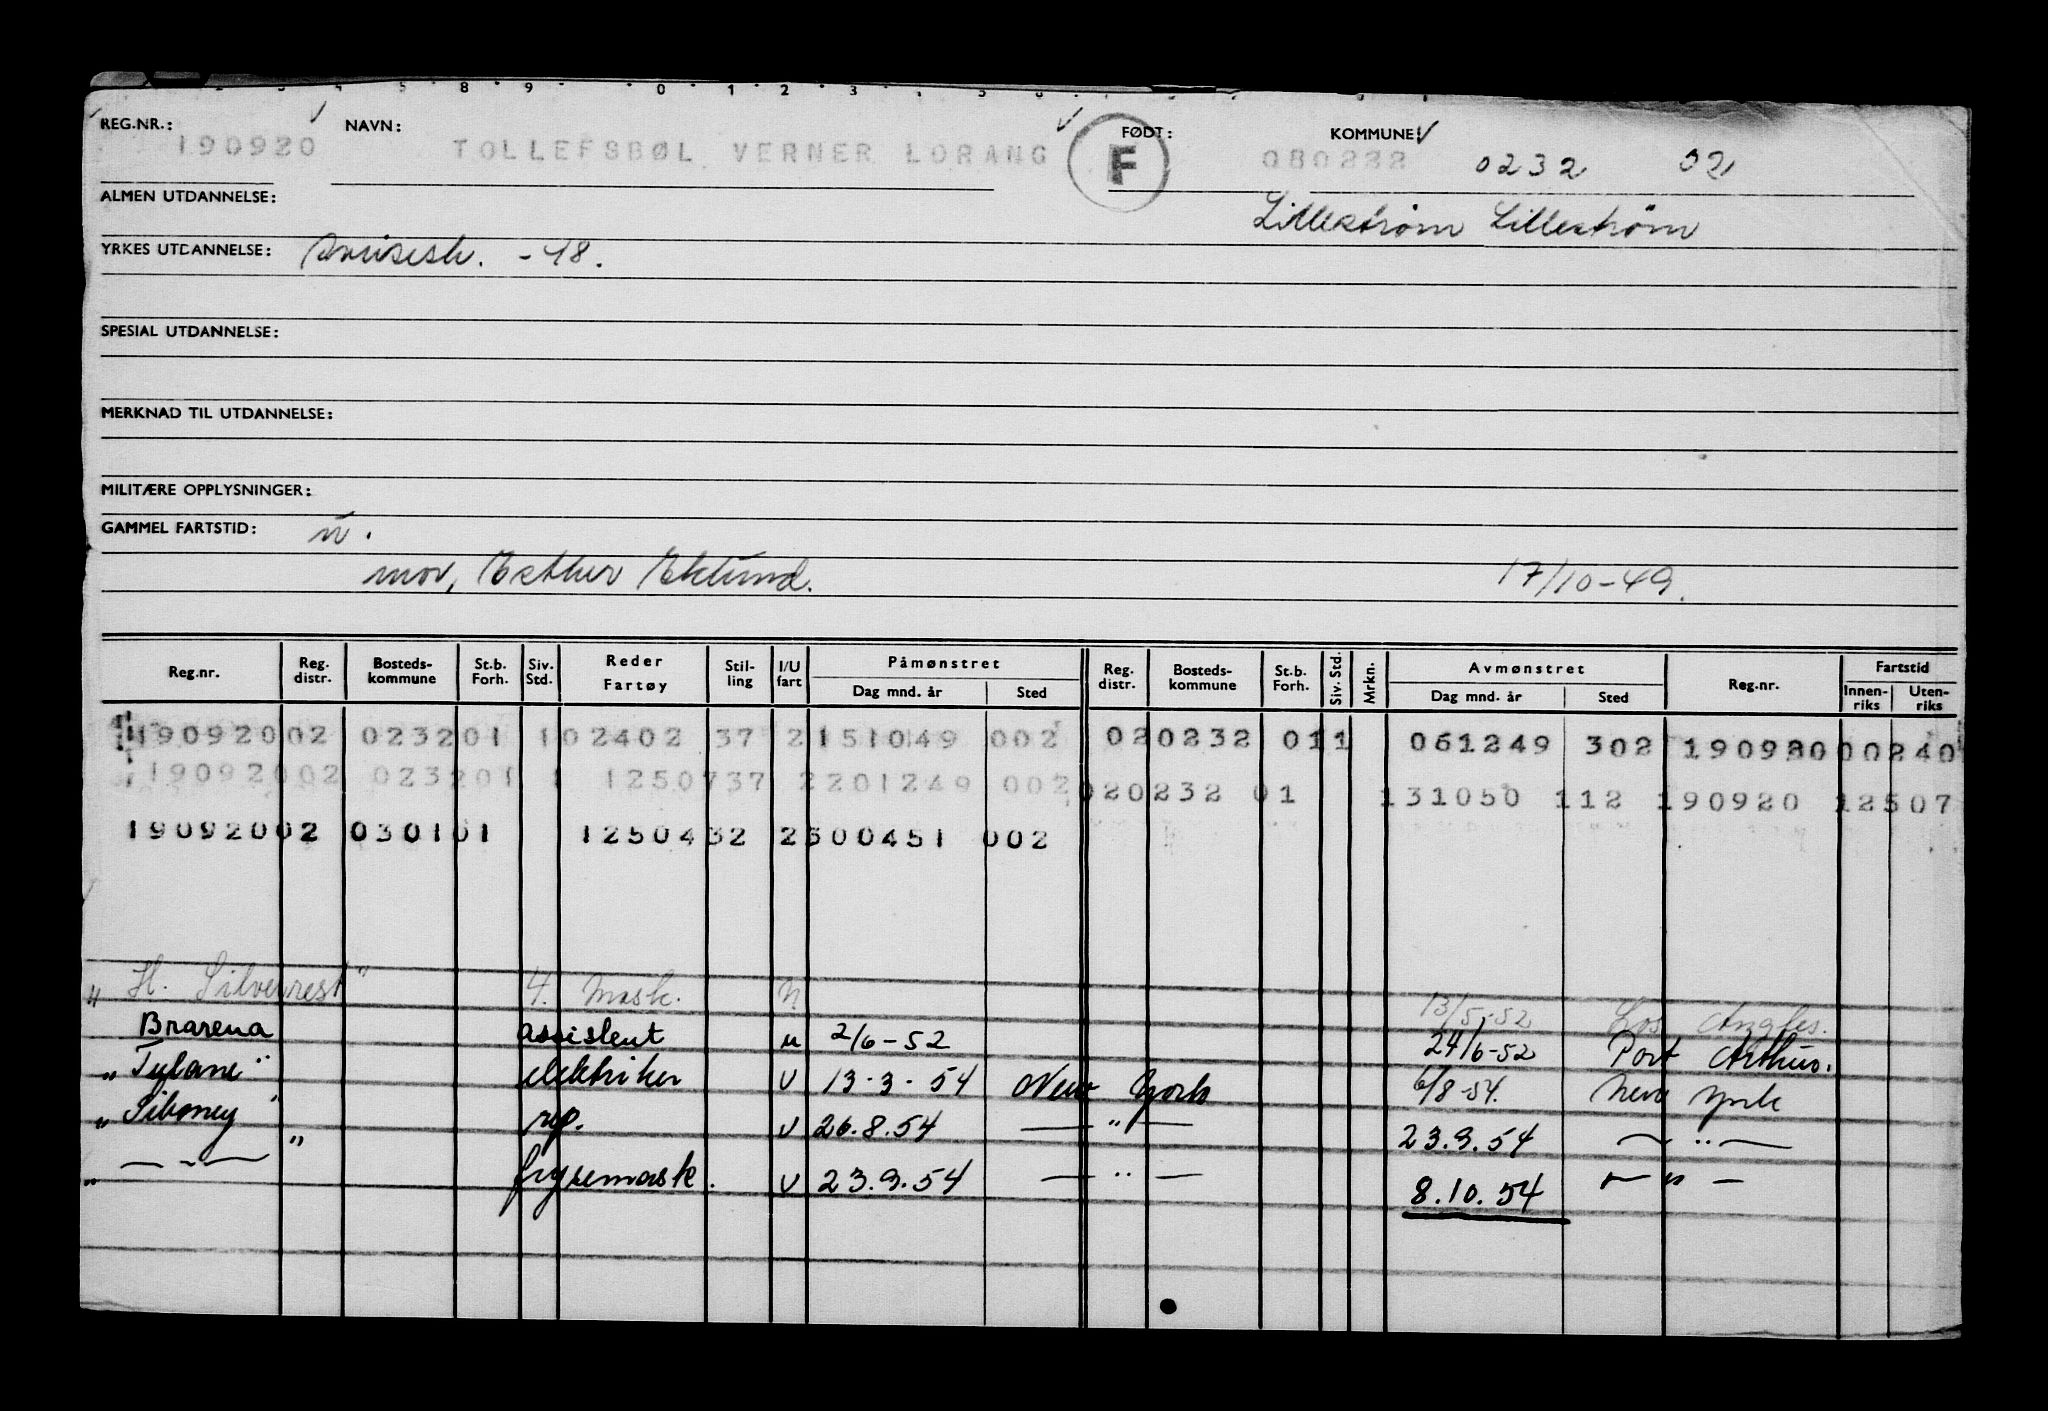 REG.NR.: 190920 NAVN: TOLLEFSBØL VERNER LORANG F FØDT: 080232 KOMMUNE: 0232 02
ALMEN UTDANNELSE: Lillestrøm Lillestrøm
YRKES UTDANNELSE: -48.
SPESIAL UTDANNELSE:
MERKNAD TIL UTDANNELSE:
MILITÆRE OPPLYSNINGER:
GAMMEL FARTSTID:
mor, Esther Eklund. 17/10-49.
Reg.nr. Reg. distr. Bosteds-kommune St.b. Forh. Siv. Std. Reder Fartøy Stil-ling I/U fart Påmønstret Dag mnd. år Sted Reg. distr. Bosteds-kommune St.b. Forh. Siv. Std. Mrkn. Avmønstret Dag mnd. år Sted Reg.nr. Fartstid Innen-riks Uten-riks
19092002 023201 102402 37 2151049 002 020232 011 061249 302 19098000240
19092002 023201 1 1250737 2201249 002 020232 01 131050 112 190920 12507
19092002 030101 1250432 2300451 002
" H. Silvercrest" 4. mask. 13/5-52 Los Angles.
Brarena assistent u 2/6-52 24/6-52 Port Arthur.
" Tulane" elektriker U 13-3-54 New York 6/8-54. New York
" Siboney " rep. U 26.8.54 — " — 23.9.54 — " —
" — " — frysemask. U 23.9.54 — " — 8.10.54 — " —